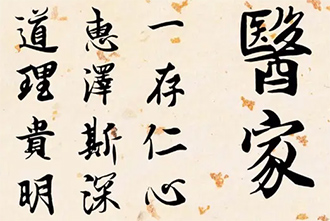 醫家
一存仁心
惠澤斯深
道理貴明